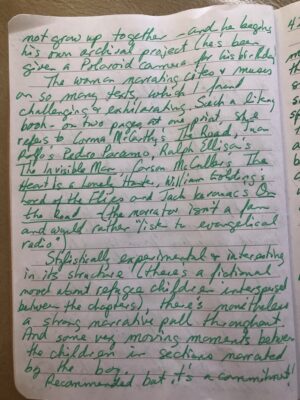 not grow up together - and he begins
his own archival project (he's been
given a Polaroid camera for his birthday).
The woman narrating cites & muses
on so many texts, which I found
challenging & exhilarating. Such a literary
book - on two pages at one point, she
refers to Cormac McCarthy's The Road, Juan
Rulfo's Pedro Paramo, Ralph Ellison's
The Invisible Man, Carson McCullers The
Heart Is a Lonely Hunter, William Golding's
Lord of the Flies and Jack Kerouac's On
the Road (the narrator isn't a fan
and would rather "listen to evangelical
radio")
Stylistically experimental & interesting
in its structure (there's a fictional
novel about refugee children interspersed
between the chapters), there's nonetheless
a strong narrative pull throughout.
And some very moving moments between
the children in sections narrated
by the boy.
Recommended but it's a commitment!